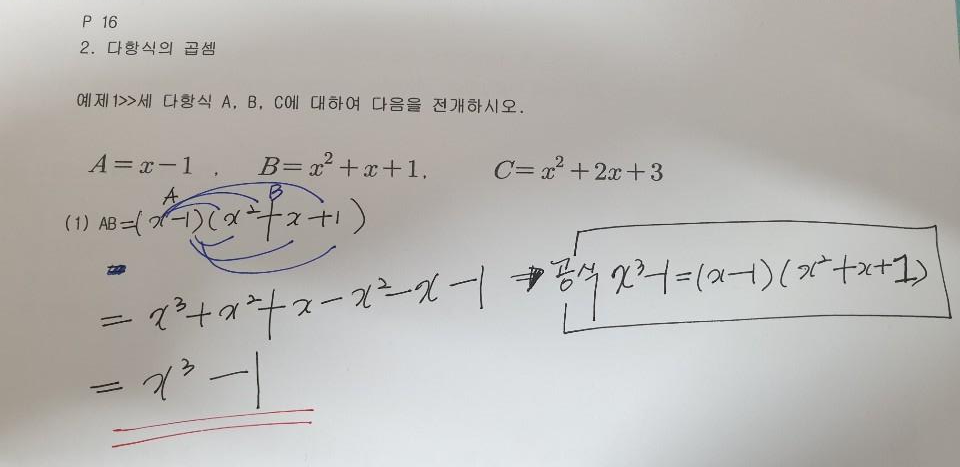 P 16
2. 다항식의 곱셈
예제1>>세 다항식 A, B, C에 대하여 다음을 전개하시오.
A=x-1 , B=x²+x+1, C=x²+2x+3
A B
(1) AB=(x-1)(x²+x+1)
= x³+x²+x-x²-x-1 → 공식 x³-1=(x-1)(x²+x+1)
= x³-1